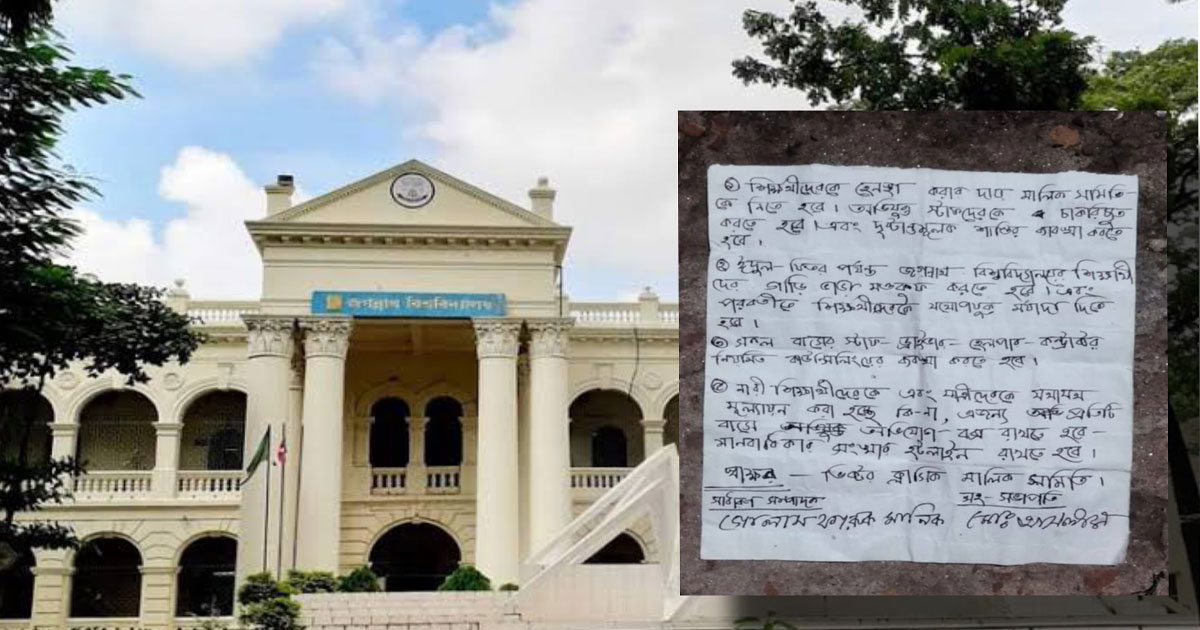 জগন্নাথ বিশ্ববিদ্যালয়
① শিক্ষার্থীদেরকে হেনস্থা করার দায় মালিক সমিতি-
কে নিতে হবে। অভিযুক্ত স্টাফদেরকে চাকরিচ্যুত
করতে হবে। এবং দৃষ্টান্তমূলক শাস্তির ব্যবস্থা করতে
হবে।
② ঈদুল-ফিতর পর্যন্ত জগন্নাথ বিশ্ববিদ্যালয়ের শিক্ষার্থী
দের গাড়ি ভাড়া মওকুফ করতে হবে। এবং
পরবর্তীতে শিক্ষার্থীদেরকে যথোপযুক্ত মর্যাদা দিতে
হবে।
③ সকল বাসের স্টাফ- ড্রাইভার- হেলপার- কন্ট্রাক্টর
নিয়মিত কাউন্সিলিংয়ের ব্যবস্থা করতে হবে।
④ নারী শিক্ষার্থীদেরকে এবং যাত্রীদেরকে যথাযথ
মূল্যায়ন করা হচ্ছে কি-না, এজন্য প্রতিটি
বাসে অভিযোগ-বক্স রাখতে হবে-
মানবাধিকার সংস্থার হটলাইন রাখতে হবে।
স্বাক্ষর - ভিক্টর ক্লাসিক মালিক সমিতি।
সাধারণ সম্পাদক সহ-সভাপতি
গোলাম ফারুক মালিক মোঃ